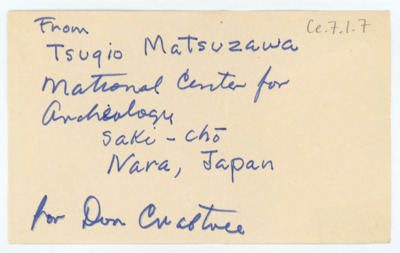 From
Ce.7.1.7
Tsugio Matsuzawa
National Center for
Archeology
Saki-chō
Nara, Japan
for Don Crabtree